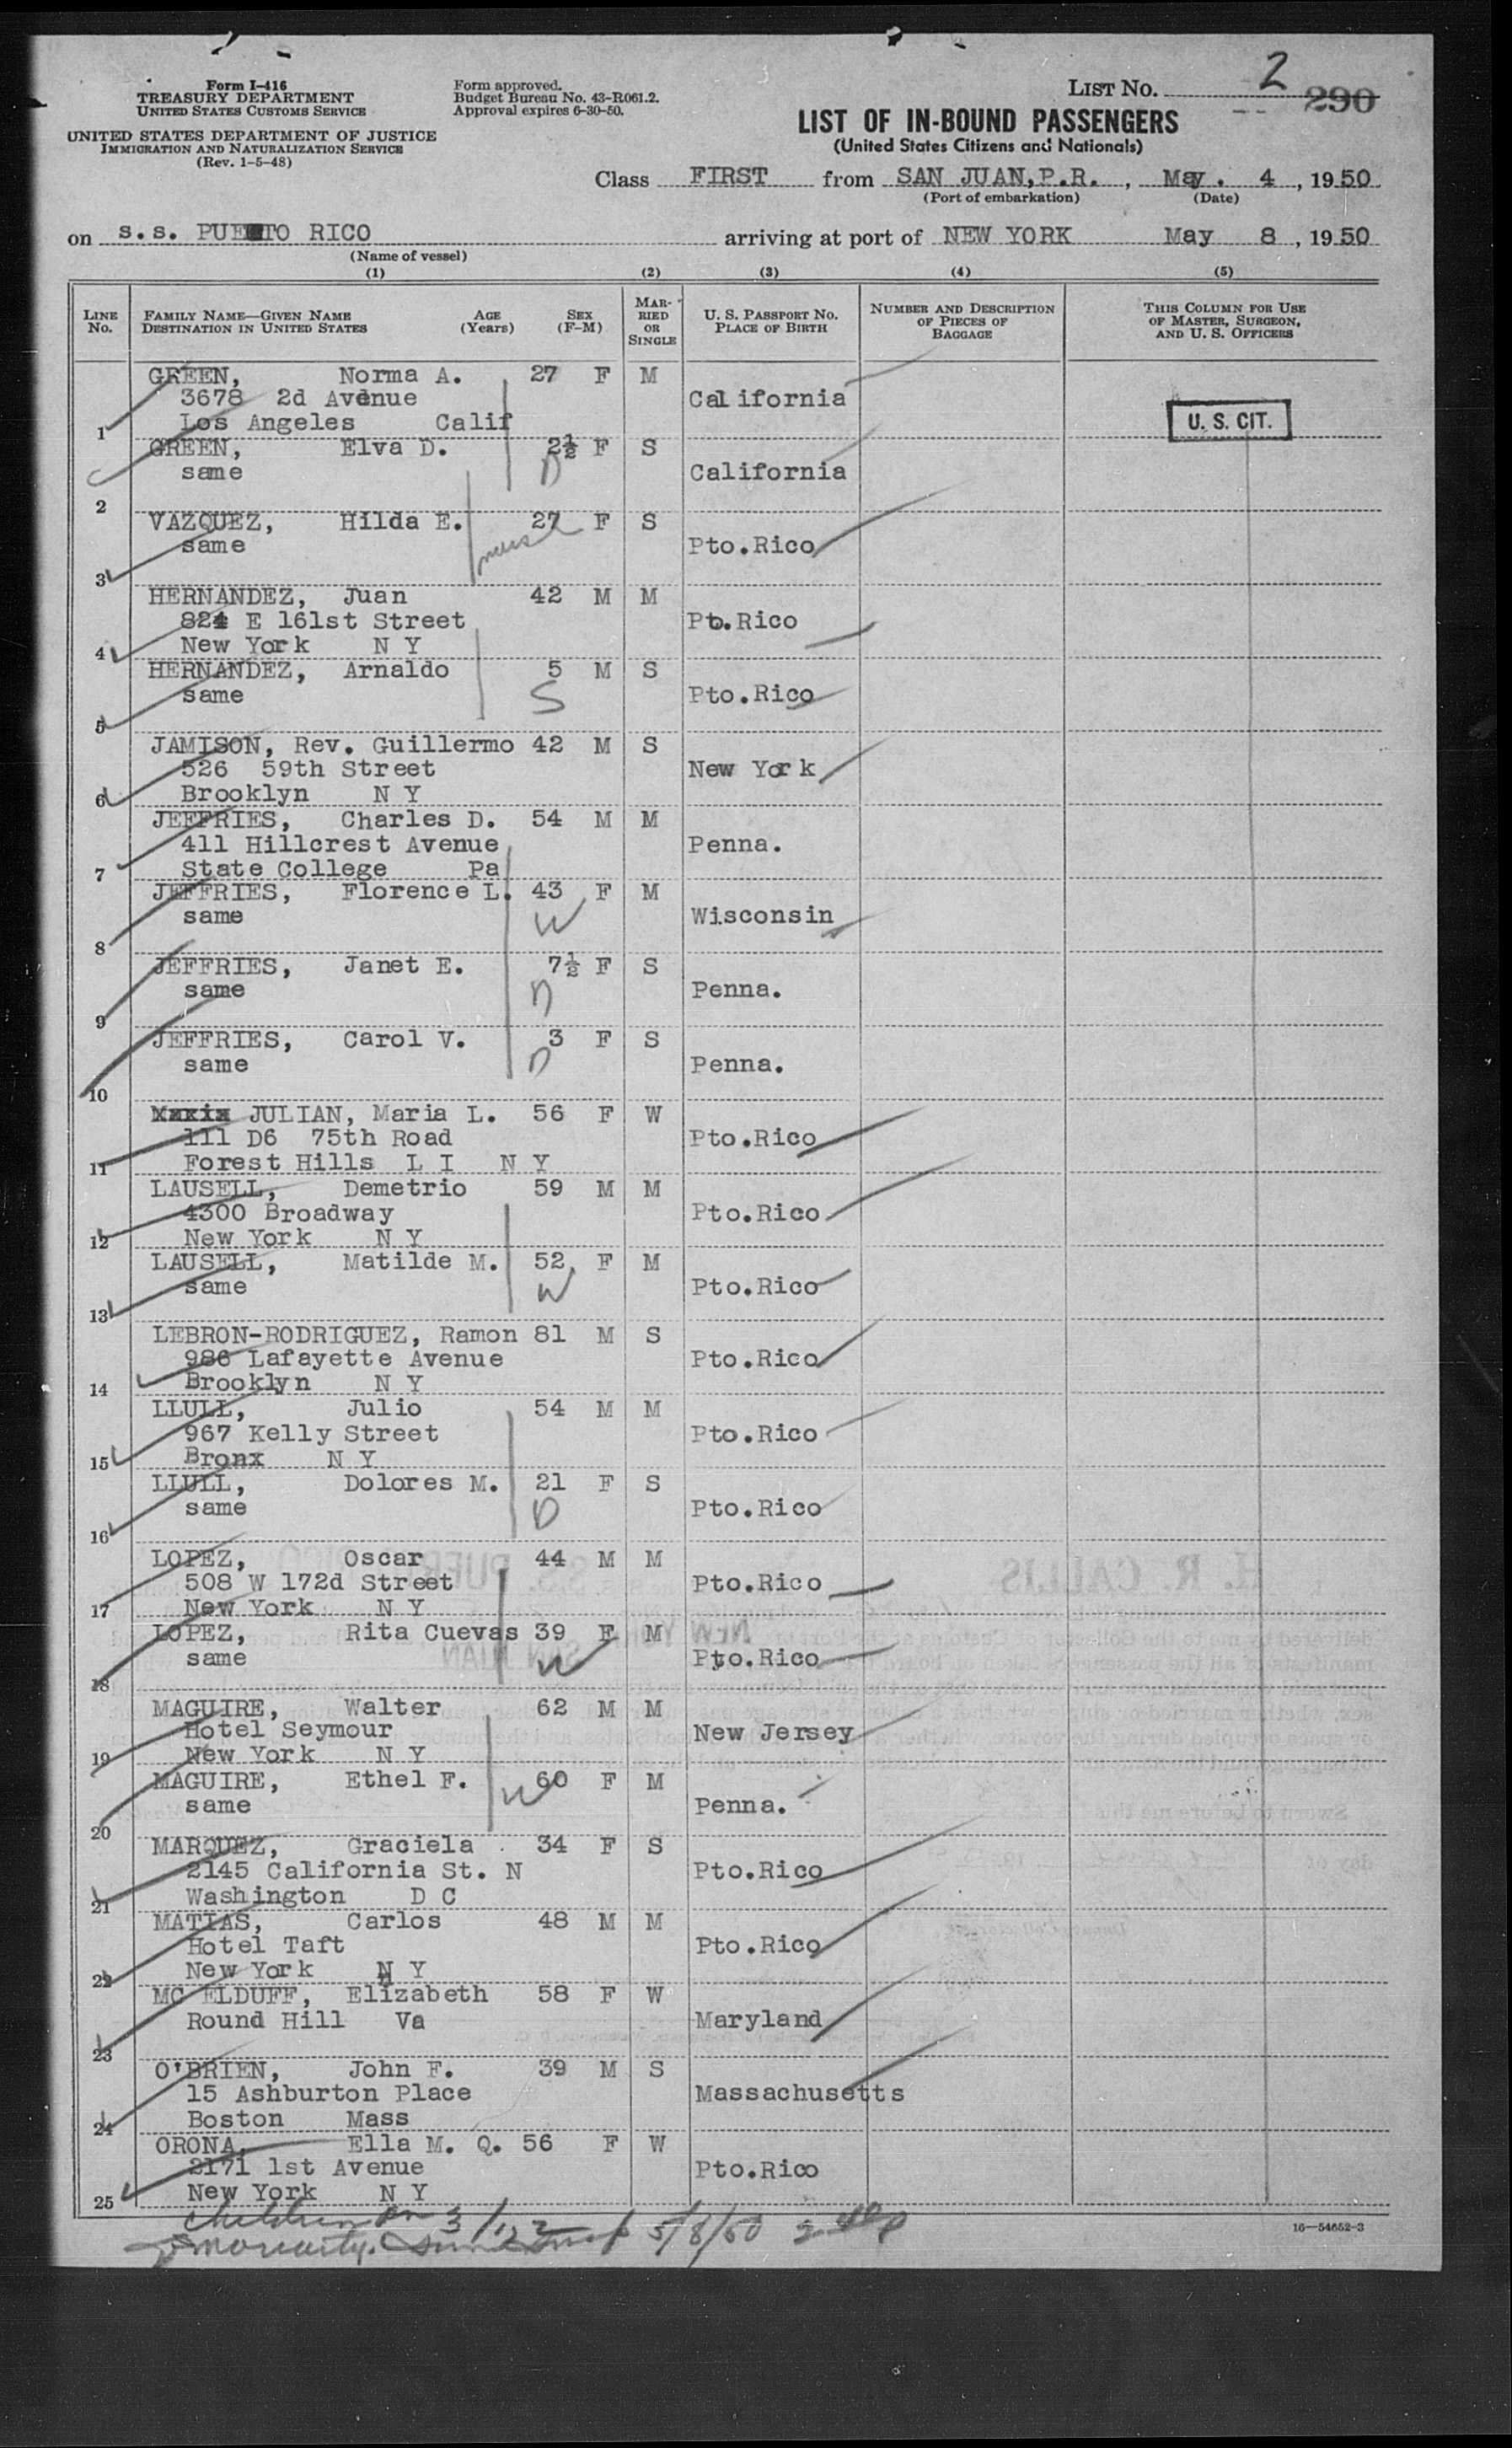 Form I-416
TREASURY DEPARTMENT
UNITED STATES CUSTOMS SERVICE
UNITED STATES DEPARTMENT OF JUSTICE
IMMIGRATION AND NATURALIZATION SERVICE
(Rev. 1-5-48)
Form approved.
Budget Bureau No. 43-R061.2.
Approval expires 6-30-50.
LIST No. 2
290
LIST OF IN-BOUND PASSENGERS
(United States Citizens and Nationals)
Class FIRST from SAN JUAN, P.R. , May. 4 , 1950
(Port of embarkation) (Date)
on s.s. PUERTO RICO arriving at port of NEW YORK May 8 , 1950
(Name of vessel)
(1) (2) (3) (4) (5)
LINE No. FAMILY NAME—GIVEN NAME DESTINATION IN UNITED STATES AGE (Years) SEX (F-M) MARRIED OR SINGLE U. S. PASSPORT NO. PLACE OF BIRTH NUMBER AND DESCRIPTION OF PIECES OF BAGGAGE THIS COLUMN FOR USE OF MASTER, SURGEON, AND U. S. OFFICERS
GREEN, Norma A. 27 F M
3678 2d Avenue California
1 Los Angeles Calif U. S. CIT.
GREEN, Elva D. 2½ F S
same D California
2
VAZQUEZ, Hilda E. 27 F S
same nurse Pto.Rico
3
HERNANDEZ, Juan 42 M M
824 E 161st Street Pto.Rico
4 New York N Y
HERNANDEZ, Arnaldo 5 M S
same S Pto.Rico
5
JAMISON, Rev. Guillermo 42 M S
526 59th Street New York
6 Brooklyn N Y
JEFFRIES, Charles D. 54 M M
411 Hillcrest Avenue Penna.
7 State College Pa
JEFFRIES, Florence L. 43 F M
same W Wisconsin
8
JEFFRIES, Janet E. 7½ F S
same D Penna.
9
JEFFRIES, Carol V. 3 F S
same D Penna.
10
JULIAN, Maria L. 56 F W
111 D6 75th Road Pto.Rico
11 Forest Hills L I N Y
LAUSELL, Demetrio 59 M M
4300 Broadway Pto.Rico
12 New York N Y
LAUSELL, Matilde M. 52 F M
same W Pto.Rico
13
LEBRON-RODRIGUEZ, Ramon 81 M S
986 Lafayette Avenue Pto.Rico
14 Brooklyn N Y
LLULL, Julio 54 M M
967 Kelly Street Pto.Rico
15 Bronx N Y
LLULL, Dolores M. 21 F S
same D Pto.Rico
16
LOPEZ, Oscar 44 M M
508 W 172d Street Pto.Rico
17 New York N Y
LOPEZ, Rita Cuevas 39 F M
same W Pto.Rico
18
MAGUIRE, Walter 62 M M
Hotel Seymour New Jersey
19 New York N Y
MAGUIRE, Ethel F. 60 F M
same W Penna.
20
MARQUEZ, Graciela 34 F S
2145 California St. N Pto.Rico
21 Washington D C
MATIAS, Carlos 48 M M
Hotel Taft Pto.Rico
22 New York N Y
MC ELDUFF, Elizabeth 58 F W
Round Hill Va Maryland
23
O'BRIEN, John F. 39 M S
15 Ashburton Place Massachusetts
24 Boston Mass
ORONA, Ella M. Q. 56 F W
2171 1st Avenue Pto.Rico
25 New York N Y
Children
Moriarty 5/8/50
16—54652-3